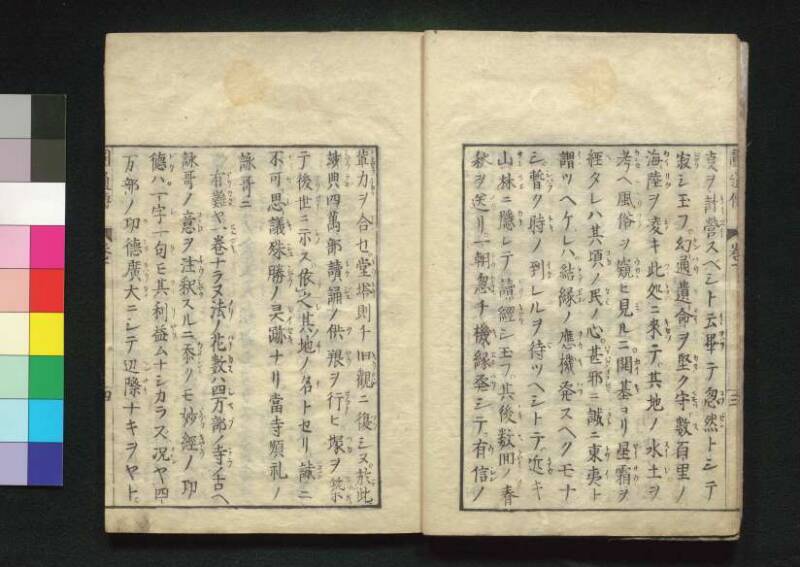 夏ヲ計営スベシト云畢テ忽然トシテ
寂シ玉フ幻通遺命ヲ堅ク守数百里ノ
海陸ヲ凌キ此処ニ来テ其地ノ水土ヲ
考ヘ風俗ヲ窺ヒ見ルニ開基ヨリ星霜ヲ
経タレハ其頃ノ民ノ心甚邪ニ誠ニ東夷ト
謂ツヘケレハ結縁ノ應機発スヘクモナ
シ暫ク時ノ到レルヲ待ツヘシトテ近キ
山林ニ隠レテ讀經シ玉フ其後数回ノ春
秋ヲ送リ一朝忽チ機縁発シテ有信ノ
三
輩力ヲ合セ堂塔則チ旧觀ニ復シヌ於此
興四萬部讀誦ノ供ヲ行ヒ塚ヲ築
テ後世ニ示ス依之其地ノ名トセリ誠ニ
不可思議殊勝ノ灵蹤ナリ當寺順礼ノ
詠哥ニ
有難ヤ一巻ナラヌ法ノ花数ハ四万部ノ寺ノ古ヘ
詠哥ノ意ヲ注釈スルニ忝クモ妙經ノ功
德ハ一字一句モ其利益ムナシカラス况ヤ四
万部ノ功德廣大ニシテ辺際ナキヲヤト
四